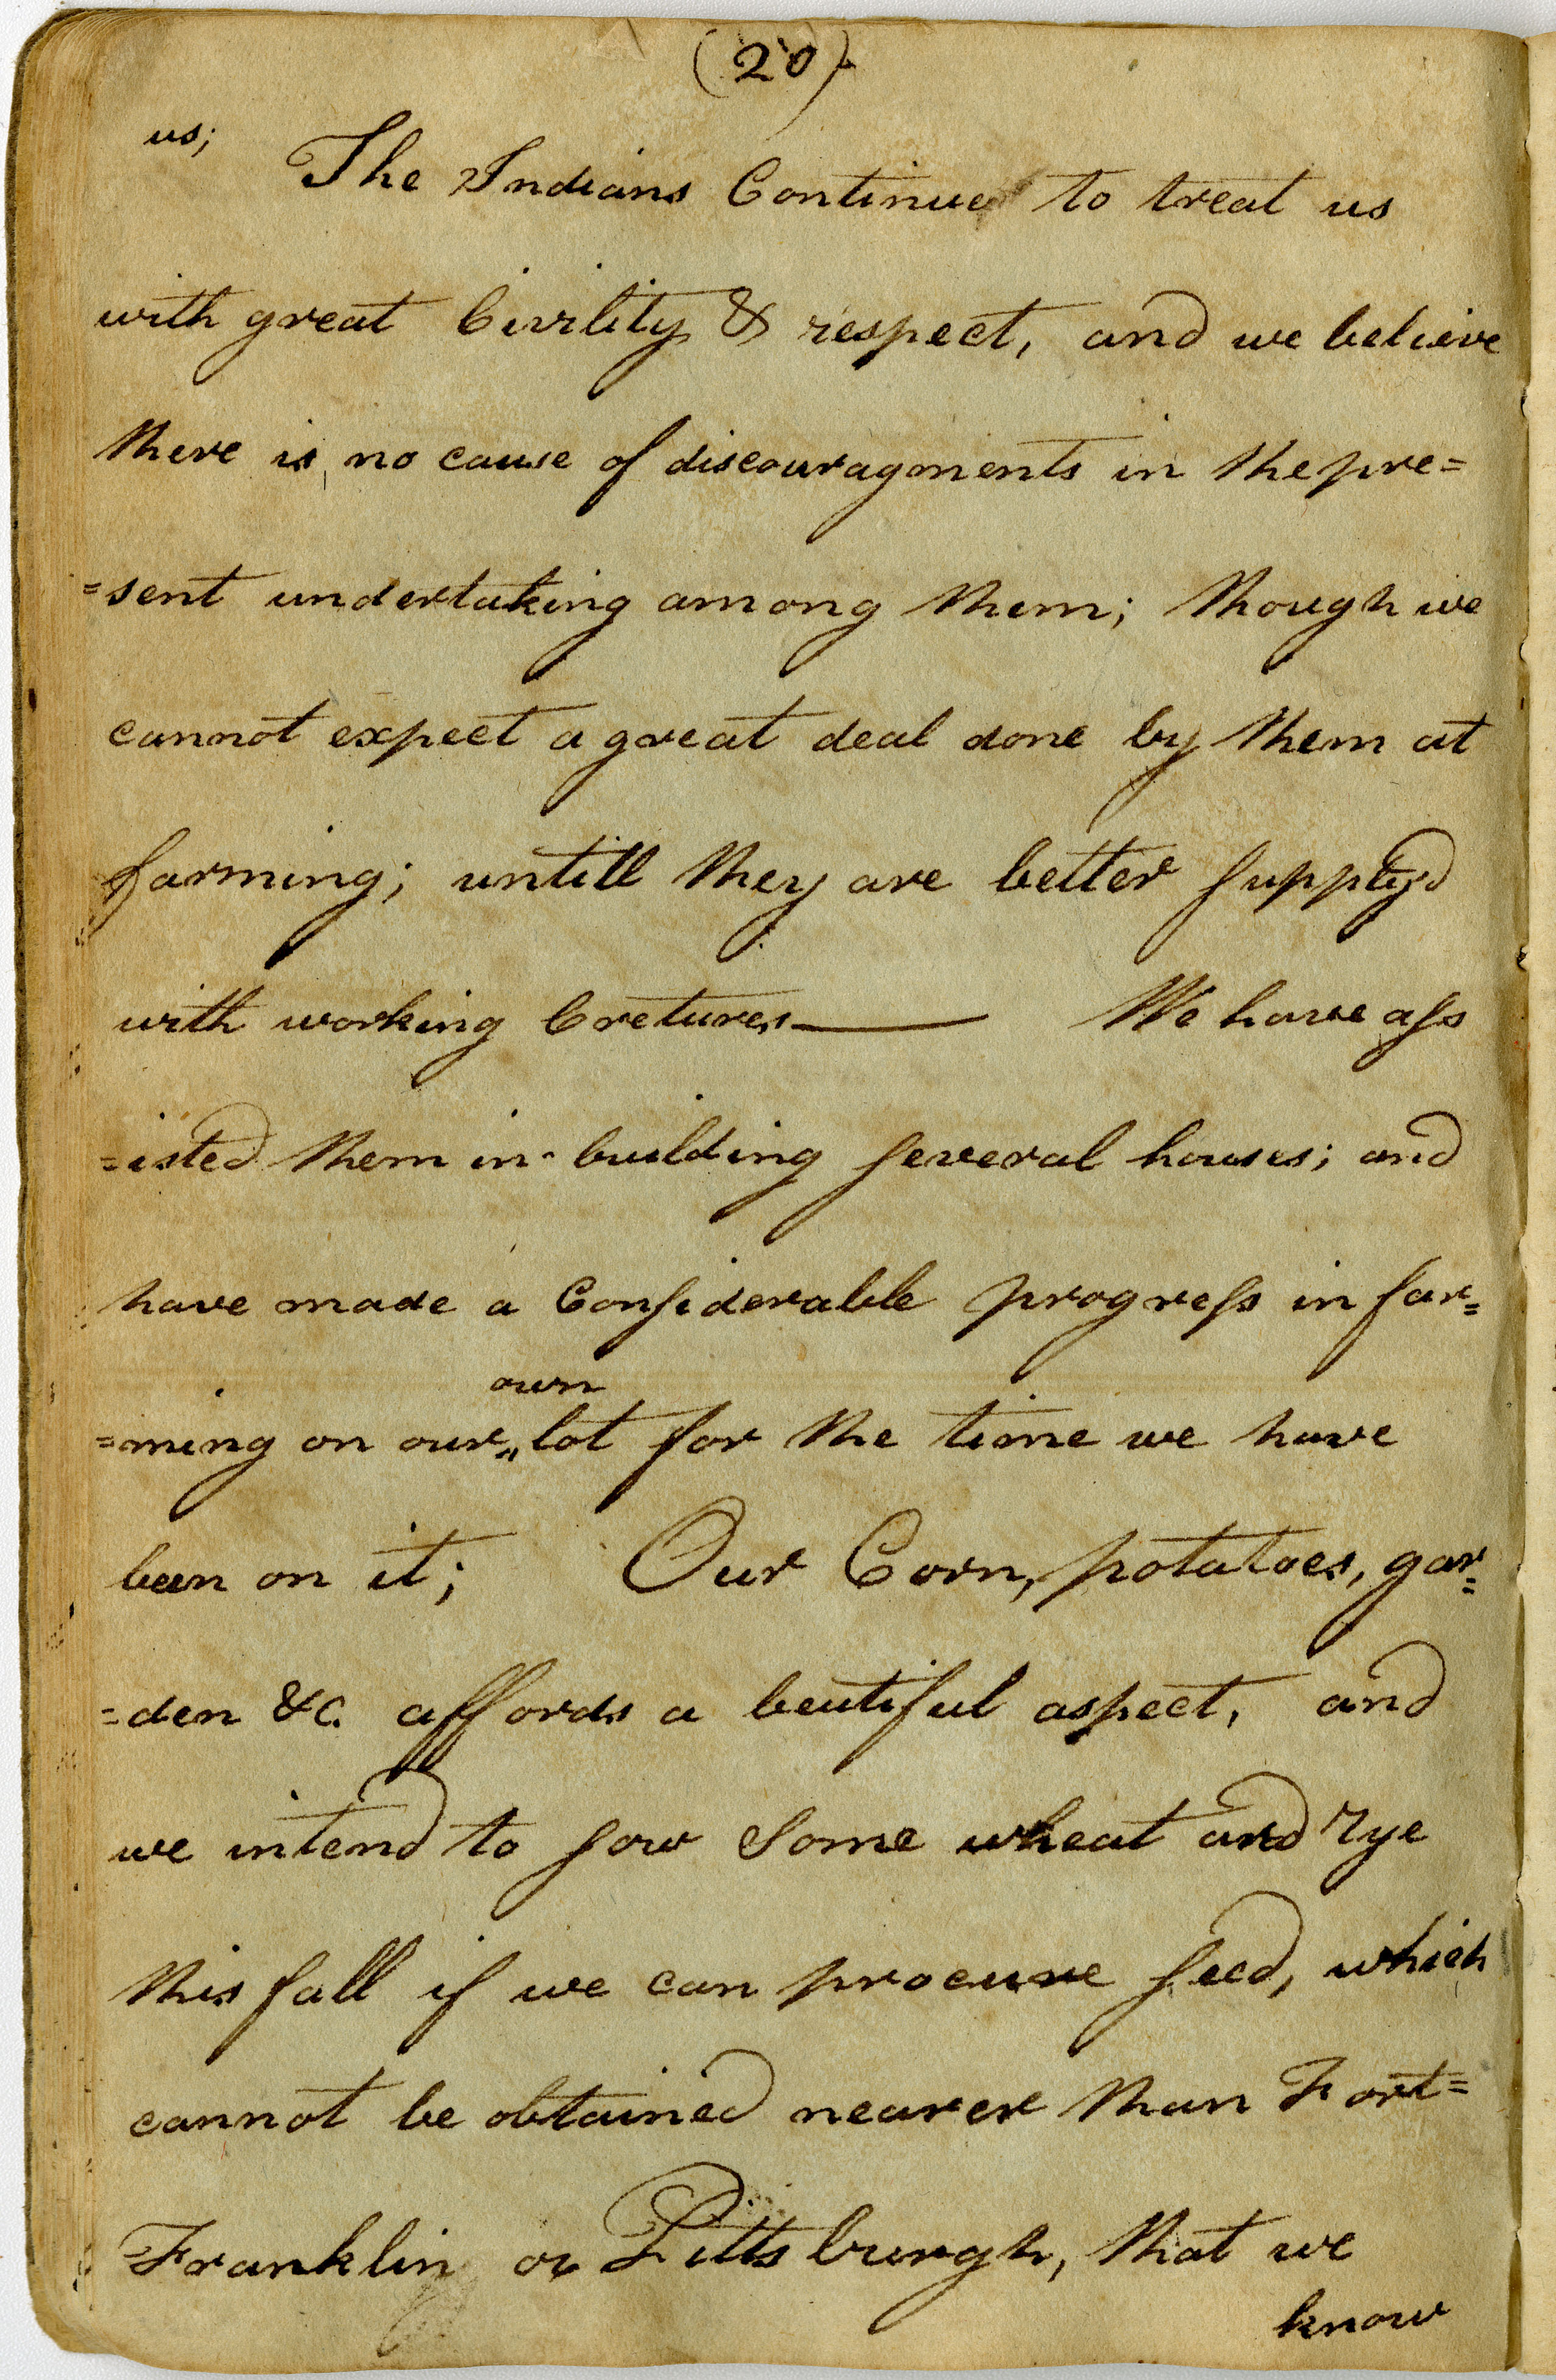 (20)
us;
The Indians Continue to treat us
with great Civility & respect, and we believe
there is no cause of discouragments in the pre=
=sent undertaking among them; though we
cannot expect a great deal done by them at
farming; untill they are better supply'd
with working Cretures— We have ass
=isted them in building several houses; and
have made a Considerable progress in far=
own
=ming on our„ lot for the time we have
been on it; Our Corn, potatoes, gar=
=den &c. affords a beutiful aspect, and
we intend to sow Some wheat and rye
this fall if we can procure seed, which
cannot be obtained nearer than Fort=
Franklin or Pittsburgh, that we
know